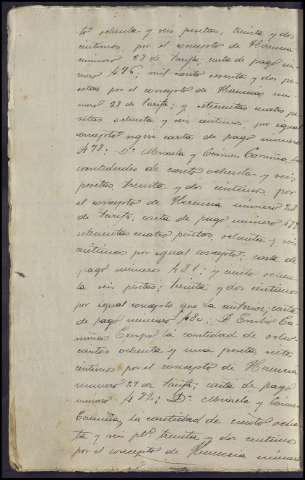 to ochenta y seis pesetas, treinta y dos
centimos, por el concepto de Herencia
número 28 de tarifa; carta de pago nú
mero 476; mil ciento ochenta y dos pe
setas por el concepto de Herencia nú
mero 28 de tarifa; y setecientas cuatro pe
setas ochenta y seis centimos, por igual
concepto según carta de pago número
478; Dª Manuela y Carmen
cantidades de ciento ochenta y seis
pesetas treinta y dos centimos por
el concepto de Herencia número 28
de tarifa, carta de pago número 477
setecientas cuatro pesetas, ochenta y seis
centimos por igual concepto, carta de
pago número 481; y ciento ochen
ta seis pesetas; treinta y dos centimos
por igual concepto que la anterior; carta
de pago número 480; D. Emilio Ca
la cantidad de ocho
cientos ochenta y una peseta, siete
centimos por el concepto de Herencia
número 27 de tarifa; carta de pago
número 479; Dª Manuela y Carmen
la cantidad de ciento ochen
ta y seis ptas treinta y dos centimos
por el concepto de Herencia número